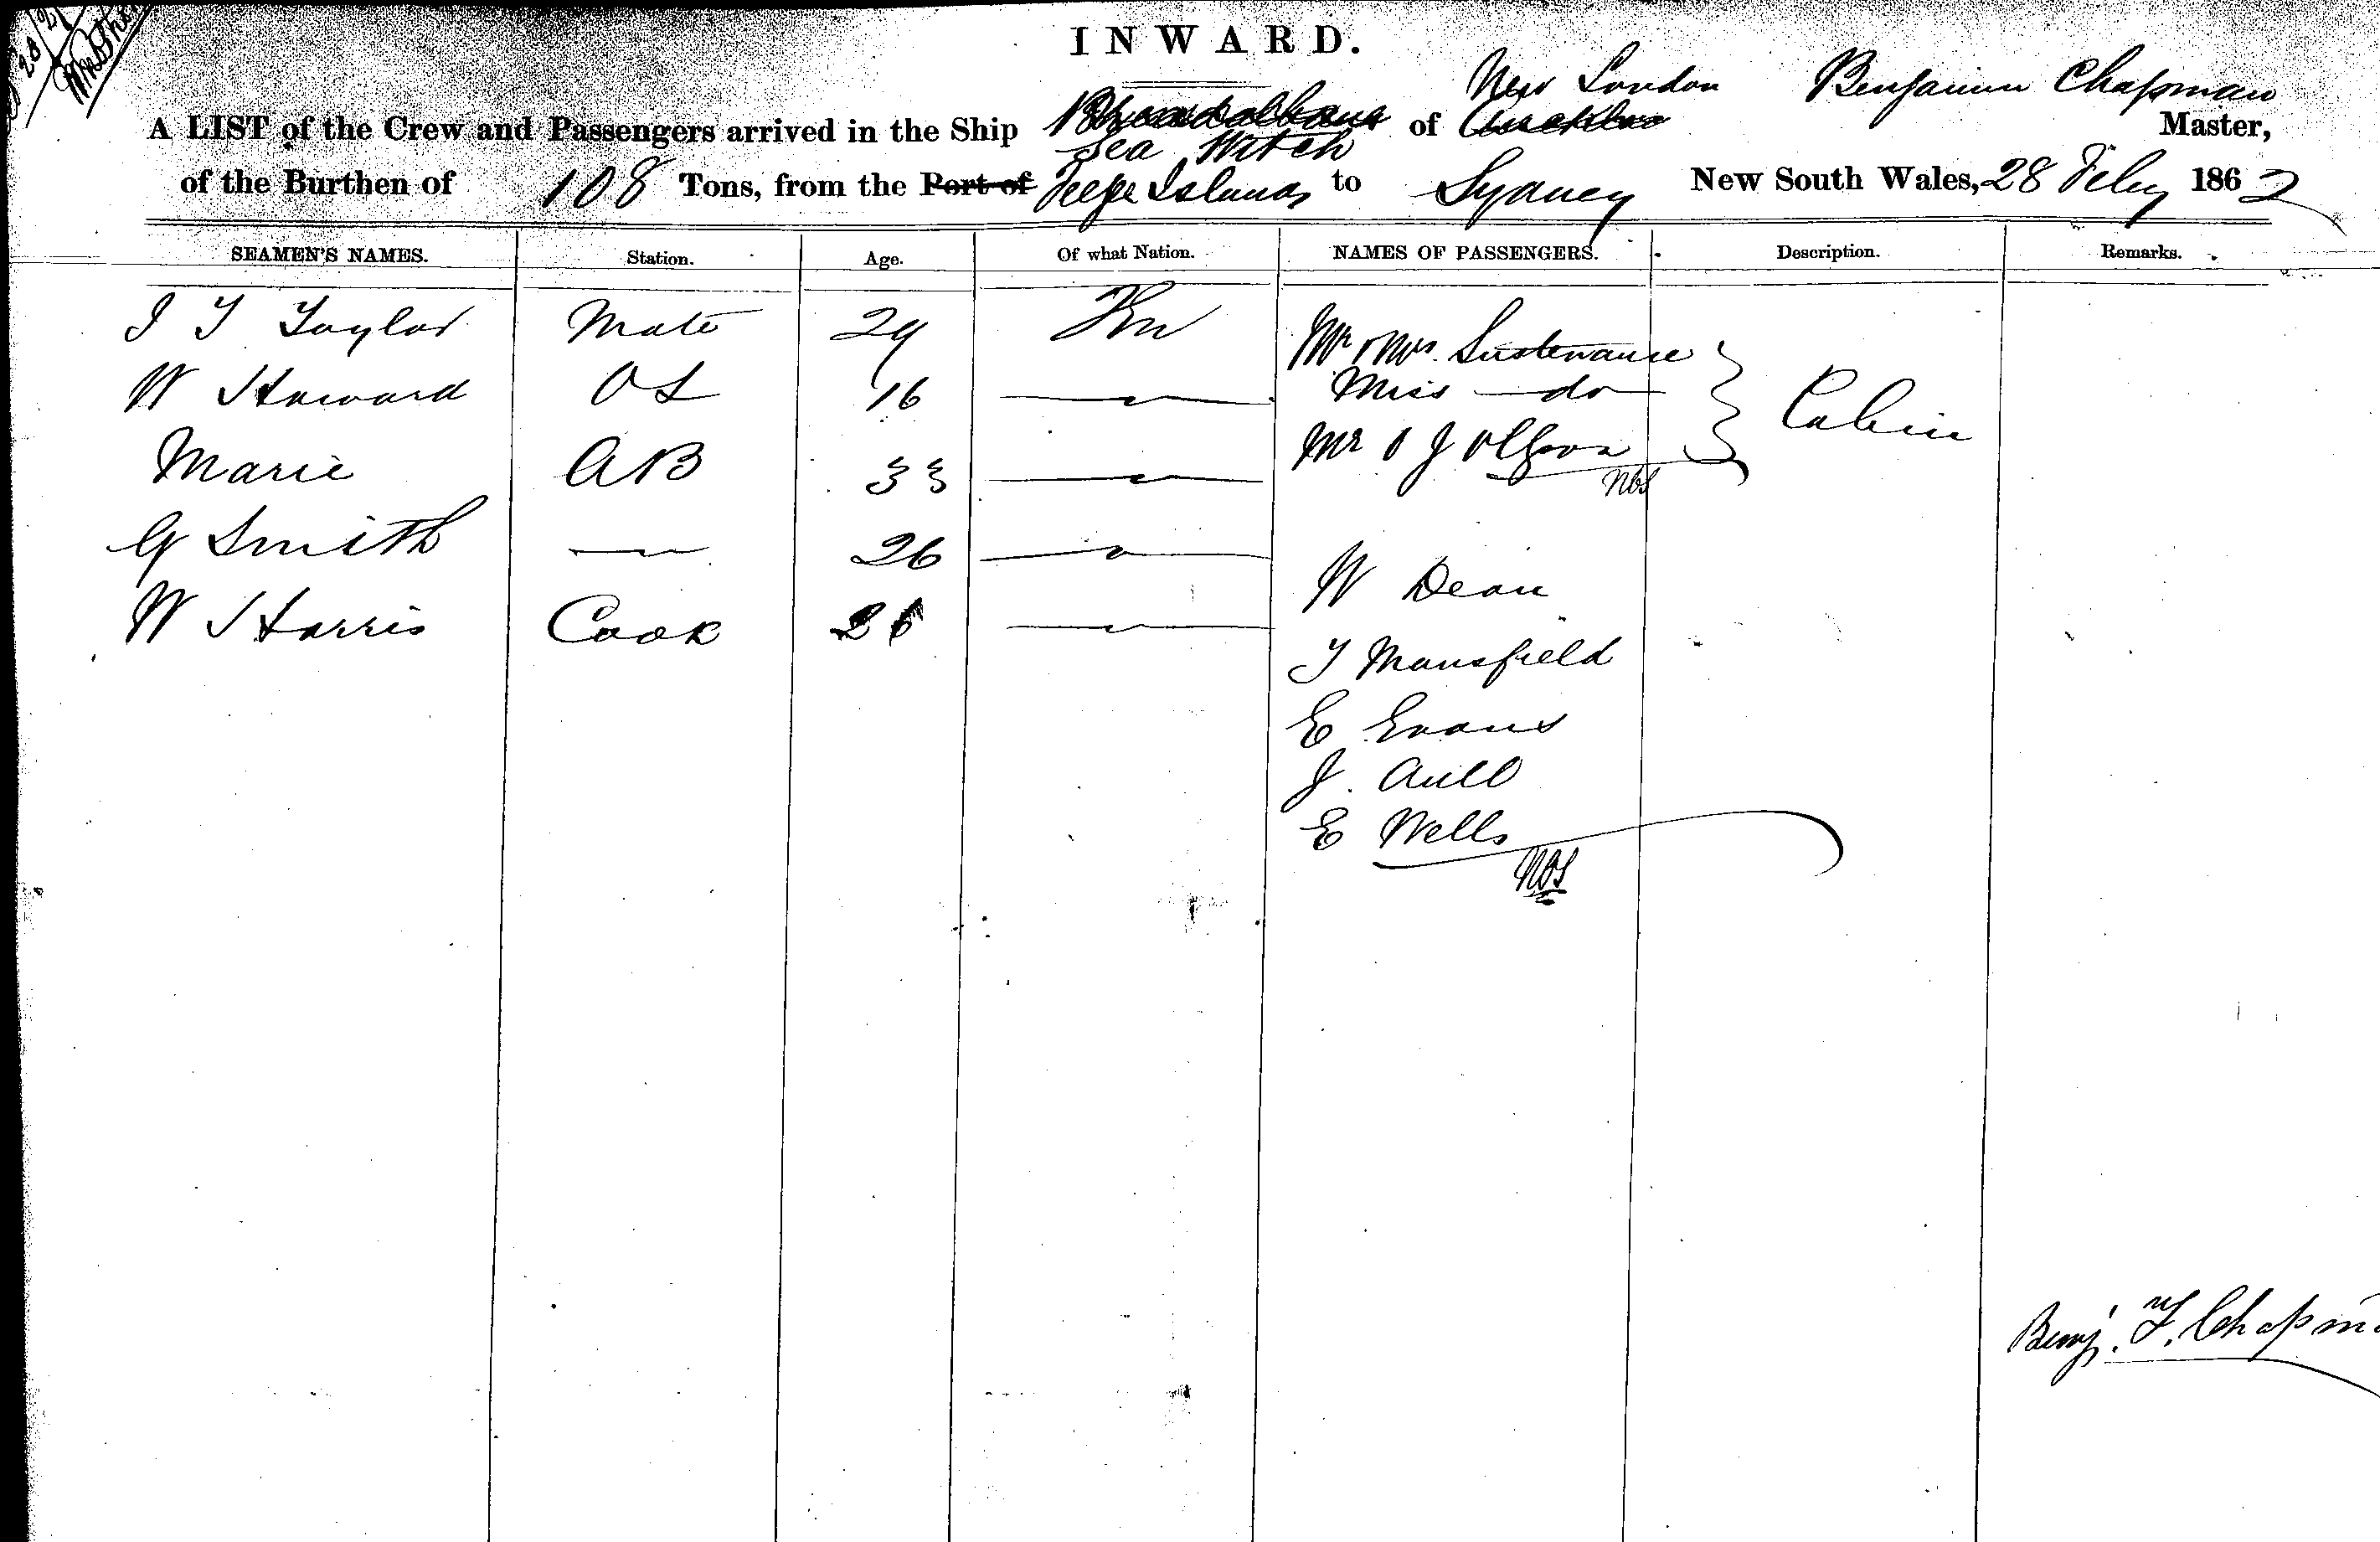 28/2
INWARD.
New London Benjamin Chapman
A LIST of the Crew and Passengers arrived in the Ship of Master,
Sea Witch
of the Burthen of 108 Tons, from the Port of Feege Islands to Sydney New South Wales, 28 Feby 1862
SEAMEN'S NAMES. Station. Age. Of what Nation. NAMES OF PASSENGERS. Description. Remarks.
J T Taylor Mate 29
Mr & Mrs Sustenance
W Howard OS 16 Miss do Cabin
Marie AB 33 Mr
NOS
G Smith — 26
W Dean
W Harris Cook 26
T Mansfield
E Evans
J. Aull
E Wells
NOS
Benj. F. Chapma